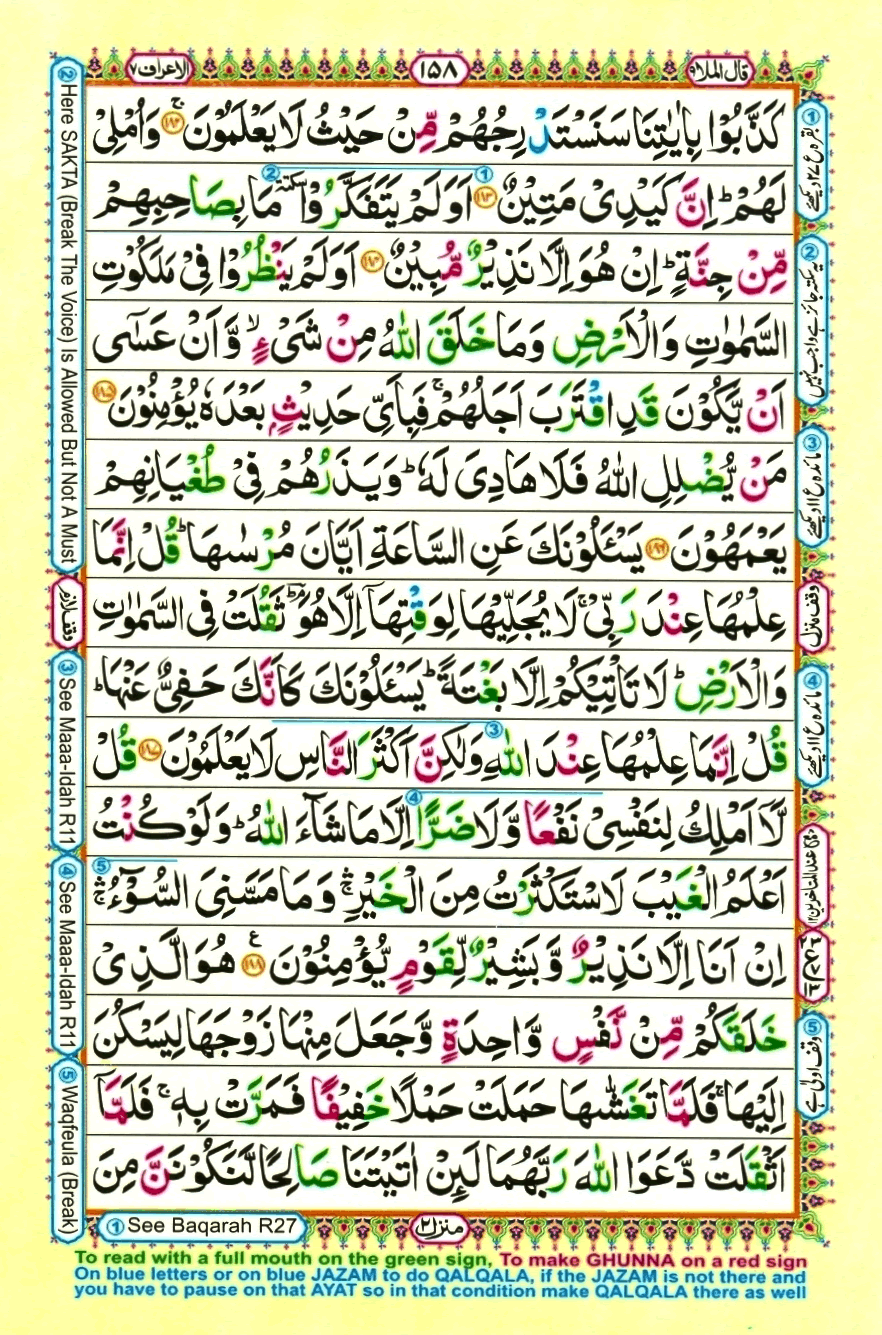 قال الملا ۹
۱۵۸
الاعراف ۷
كَذَّبُوْا بِاٰيٰتِنَا سَنَسْتَدْرِجُهُمْ مِّنْ حَيْثُ لَا يَعْلَمُوْنَ ۚ وَاُمْلِىْ
لَهُمْ ؕ اِنَّ كَيْدِىْ مَتِيْنٌ ۱۸۳ اَوَلَمْ يَتَفَكَّرُوْا سكتة مَا بِصَاحِبِهِمْ
مِّنْ جِنَّةٍ ؕ اِنْ هُوَ اِلَّا نَذِيْرٌ مُّبِيْنٌ اَوَلَمْ يَنْظُرُوْا فِىْ مَلَكُوْتِ
السَّمٰوٰتِ وَالْاَرْضِ وَمَا خَلَقَ اللّٰهُ مِنْ شَىْءٍ ۙ وَّاَنْ عَسٰٓى
اَنْ يَّكُوْنَ قَدِ اقْتَرَبَ اَجَلُهُمْ ۚ فَبِاَىِّ حَدِيْثٍۭ بَعْدَهٗ يُؤْمِنُوْنَ ۱۸۵
مَنْ يُّضْلِلِ اللّٰهُ فَلَا هَادِىَ لَهٗ ؕ وَيَذَرُهُمْ فِىْ طُغْيَانِهِمْ
يَعْمَهُوْنَ ۱۸۶ يَسْـَٔلُوْنَكَ عَنِ السَّاعَةِ اَيَّانَ مُرْسٰىهَا ؕ قُلْ اِنَّمَا
عِلْمُهَا عِنْدَ رَبِّىْ ۚ لَا يُجَلِّيْهَا لِوَقْتِهَاۤ اِلَّا هُوَ ۘؕ ثَقُلَتْ فِى السَّمٰوٰتِ
وَالْاَرْضِ ؕ لَا تَاْتِيْكُمْ اِلَّا بَغْتَةً ؕ يَسْـَٔلُوْنَكَ كَاَنَّكَ حَفِىٌّ عَنْهَا ؕ
قُلْ اِنَّمَا عِلْمُهَا عِنْدَ اللّٰهِ وَلٰكِنَّ اَكْثَرَ النَّاسِ لَا يَعْلَمُوْنَ ۱۸۷ قُلْ
لَّاۤ اَمْلِكُ لِنَفْسِىْ نَفْعًا وَّلَا ضَرًّا اِلَّا مَا شَآءَ اللّٰهُ ؕ وَلَوْ كُنْتُ
اَعْلَمُ الْغَيْبَ لَاسْتَكْثَرْتُ مِنَ الْخَيْرِ ۛۚ وَمَا مَسَّنِىَ السُّوْٓءُ ۛۚ
اِنْ اَنَا اِلَّا نَذِيْرٌ وَّبَشِيْرٌ لِّقَوْمٍ يُّؤْمِنُوْنَ ۱۸۸ ع هُوَ الَّذِىْ
خَلَقَكُمْ مِّنْ نَّفْسٍ وَّاحِدَةٍ وَّجَعَلَ مِنْهَا زَوْجَهَا لِيَسْكُنَ
اِلَيْهَا ۚ فَلَمَّا تَغَشّٰىهَا حَمَلَتْ حَمْلًا خَفِيْفًا فَمَرَّتْ بِهٖ ۚ فَلَمَّاۤ
اَثْقَلَتْ دَّعَوَا اللّٰهَ رَبَّهُمَا لَئِنْ اٰتَيْتَنَا صَالِحًا لَّنَكُوْنَنَّ مِنَ
① بقره ع ۲۷ دیکھئے
② یہ سکتہ جائز ہے واجب نہیں
③ مائده ع ۱۱ دیکھئے
وقف منزل
④ مائده ع ۱۱ دیکھئے
⑤ وقف اولی ہے
② Here SAKTA (Break The Voice) Is Allowed But Not A Must
وقف لازم
③ See Maaa-Idah R11
④ See Maaa-Idah R11
⑤ Waqfeula (Break)
① See Baqarah R27
منزل ۲
To read with a full mouth on the green sign, To make GHUNNA on a red sign
On blue letters or on blue JAZAM to do QALQALA, if the JAZAM is not there and
you have to pause on that AYAT so in that condition make QALQALA there as well